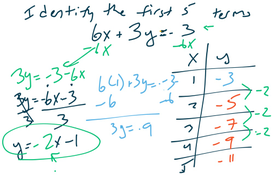 Identify the first 5 terms
6x + 3y = -3
-6x -6x
3y = -3 -6x
3y = -6x -3
3 3
y = -2x -1
6(1) + 3y = -3
-6 -6
3y = -9
x y
1 -3
2 -5
3 -7
4 -9
5 -11
-2
-2
-2